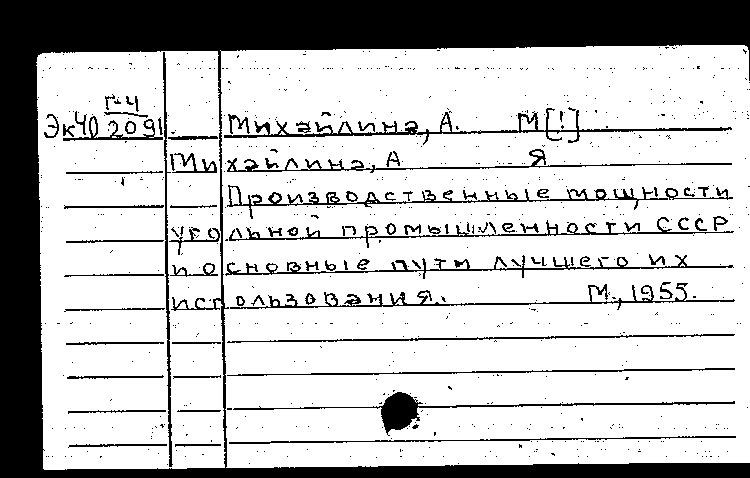 Г-4
Эк40 2091. Михайлина, А. М[!]
Михайлина, А Я
Производственные мощности
угольной промышленности СССР
и основные пути лучшего их
использования. М., 1955.